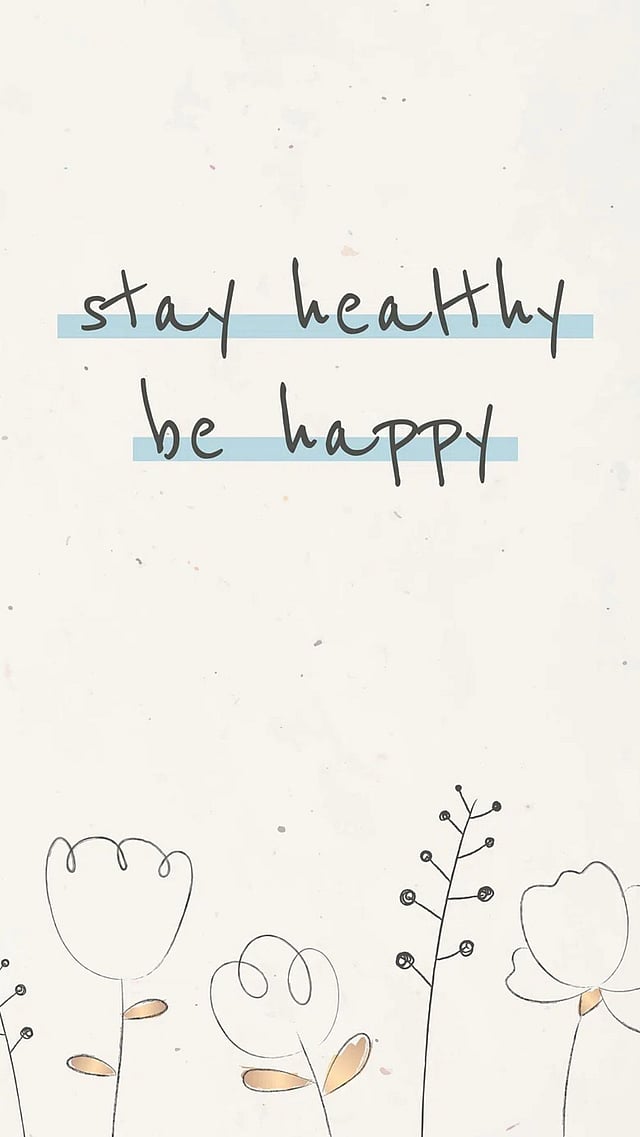 stay healthy
be happy